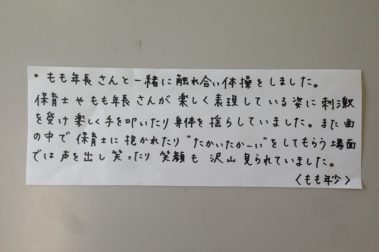 ・もも年長さんと一緒に触れ合い体操をしました。
保育士やもも年長さんが楽しく表現している姿に刺激
を受け楽しく手を叩いたり身体を揺らしていました。また曲
の中で保育士に抱かれたり"たかいたかーい"をしてもらう場面
では声を出し笑ったり笑顔も沢山見られていました。
〈もも年少〉